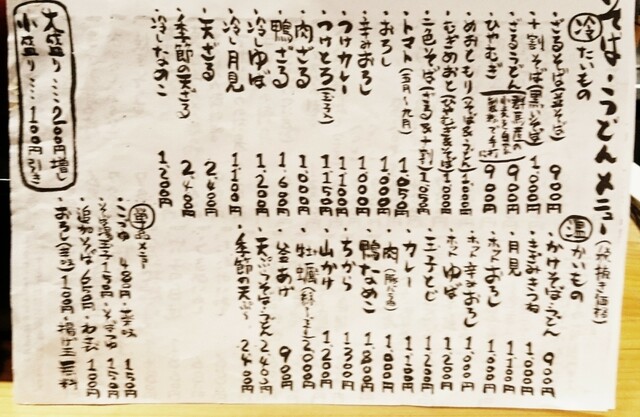 そば・うどんメニュー (税抜き価格)
冷たいもの
・ざるそば(並そば) 900円
・十割そば(黒いそば) 1,000円
・ざるうどん 900円
・ひやむぎ 900円
・めおともり(そば&うどん) 1,000円
・むぎめおと(ひやむぎ&そば) 1,000円
・二色そば(ざる&十割) 1,050円
・トマト(五月〜九月) 1,050円
・おろし 1,000円
・辛みおろし 1,100円
・つけカレー 1,100円
・つけとろ 1,150円
・肉ざる 1,000円
・鴨ざる 1,600円
・冷しゆば 1,200円
・冷し月見 1,100円
・天ざる 2,400円
・季節の天ざる 2,400円
・冷しなめこ 1,200円
大盛り…200円増し
小盛り…100円引き
温かいもの
・かけそば・うどん 900円
・きざみきつね 1,000円
・月見 1,100円
・ホットおろし 1,000円
・ホット辛みおろし 1,100円
・ゆば 1,200円
・玉子とじ 1,200円
・カレー 1,100円
・肉 1,000円
・鴨なめこ 1,800円
・ちから 1,300円
・山かけ 1,200円
・牡蠣
・釜あげ 900円
・天ぷらそば・うどん 2,400円
・季節の天ぷら 2,400円
単品メニュー
・追加そば
・おろし 100円・揚げ玉 無料